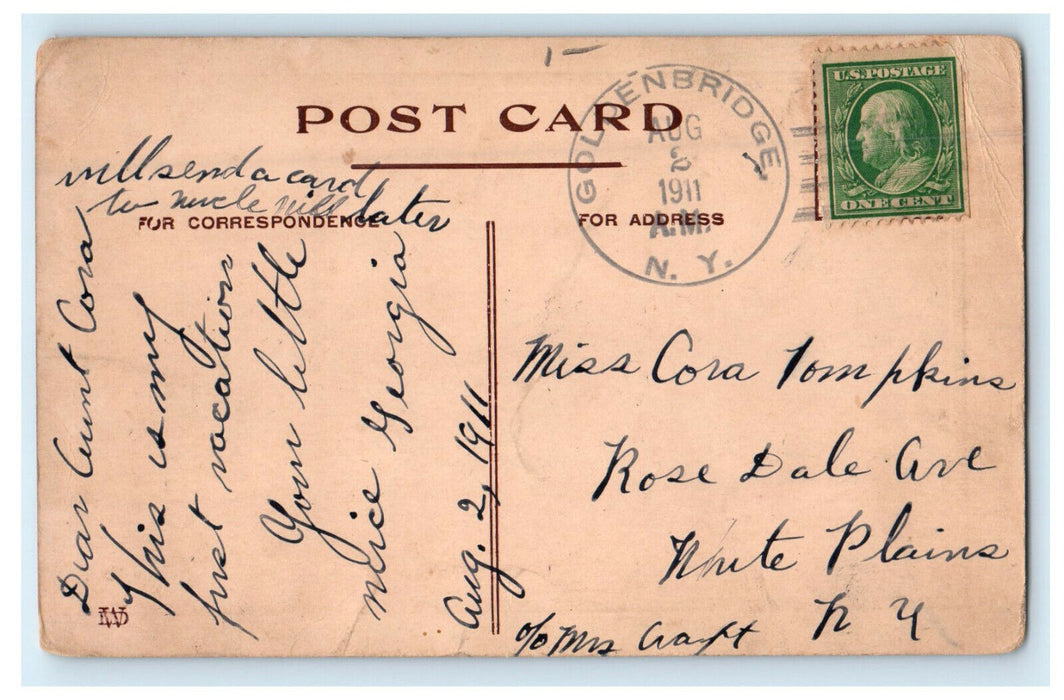 POST CARD
GOLDENBRIDGE
AUG
2
1911
A.M.
N. Y.
U.S. POSTAGE
ONE CENT
will send a card
to uncle will later
FOR CORRESPONDENCE
FOR ADDRESS
Dear Aunt Cora
This is my
first vacation
Your little
niece Georgia
Aug. 2, 1911
Miss Cora Tompkins
Rose Dale Ave
White Plains
N Y
c/o Mrs Craft